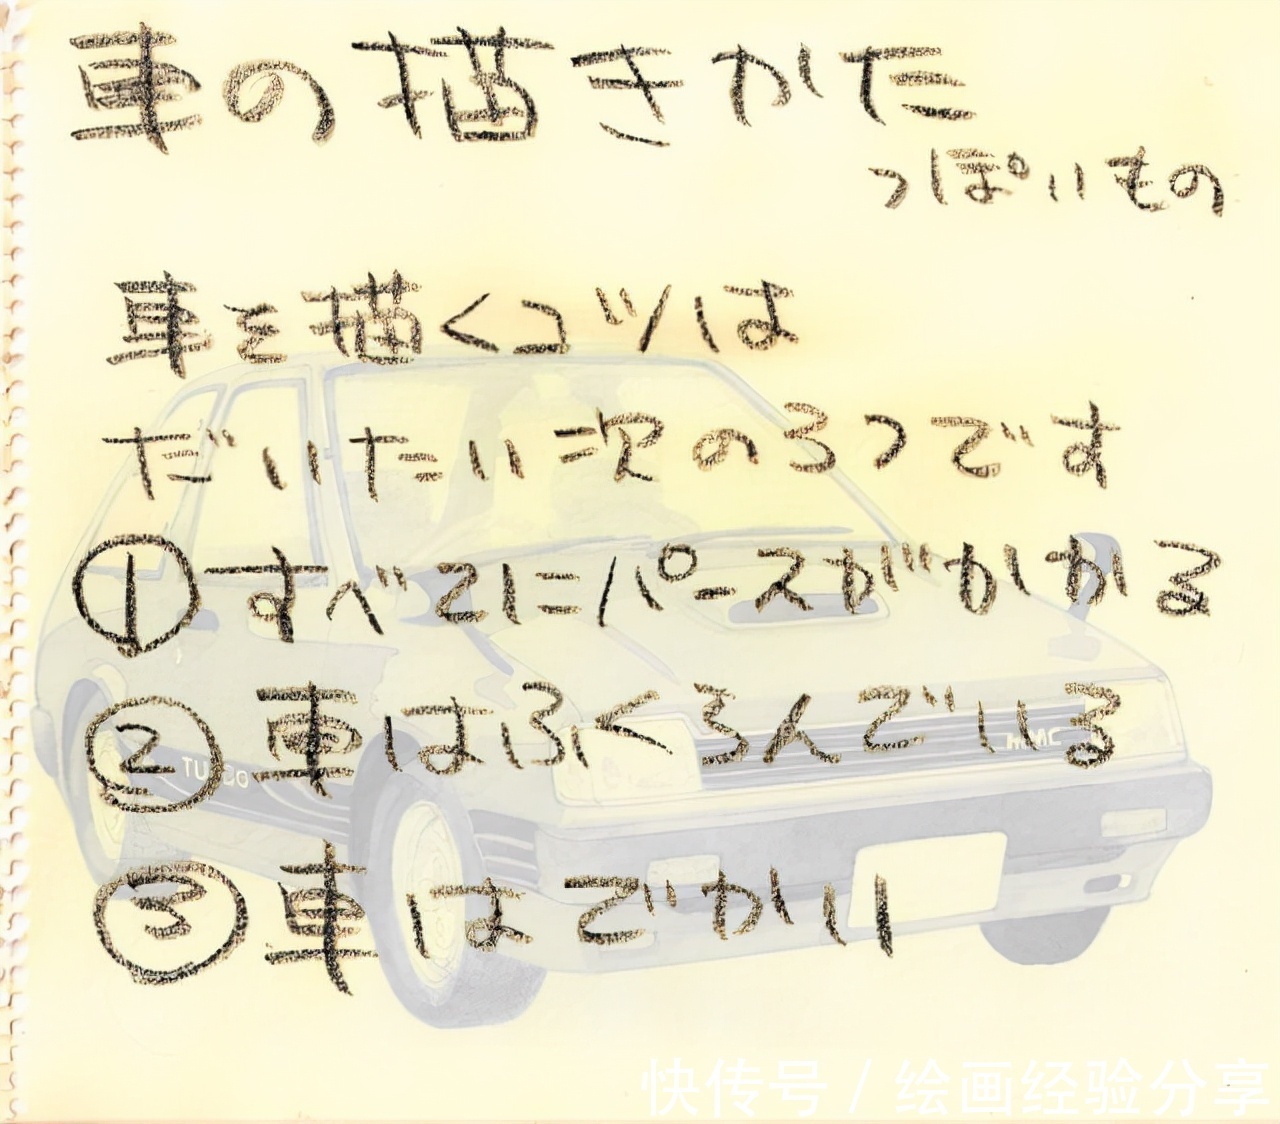 車の描きかた
っぽいもの
車を描くコツは
だいたい次の3つです
①すべてにパースがかかる
②車はふくらんでいる
③車はでかい
TURBO
HMC
快传号 / 绘画经验分享